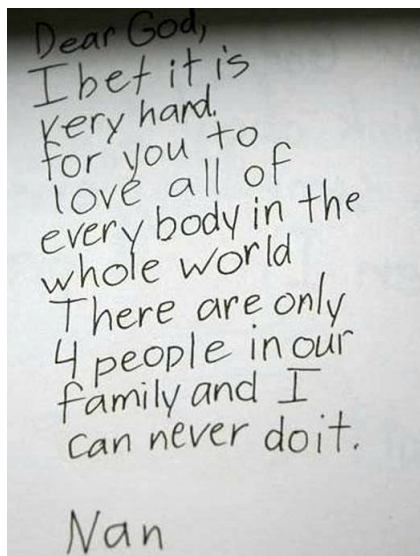 Dear God,
I bet it is
very hard.
for you to
love all of
every body in the
whole world
There are only
4 people in our
family and I
can never do it.
Nan